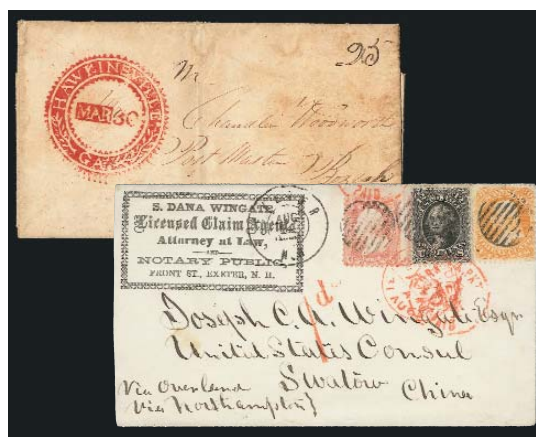 HAWKINSVILLE
MAR 30
GA
25
Mr
Chandler Woodworth
Post Master
S. DANA WINGATE,
Licensed Claim Agent,
Attorney at Law,
AND
NOTARY PUBLIC,
FRONT ST., EXETER, N. H.
PAID
1d
Joseph C. A. Wingate Esqr
United States Consul
Swatow China
Via Overland
Via Northampton